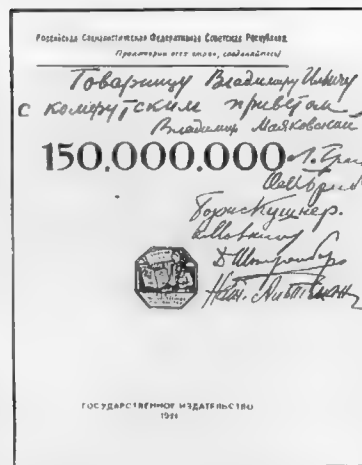 Российская Социалистическая Федеративная Советская Республика
Пролетарии всех стран, соединяйтесь!
Товарищу Владимиру Ильичу
с комфутским приветом
Владимир Маяковский
150.000.000 Л. Брик
ОМ Брик
Борис Кушнер.
Д Штеренберг
Нат. Альтман
ГОСУДАРСТВЕННОЕ ИЗДАТЕЛЬСТВО
1921